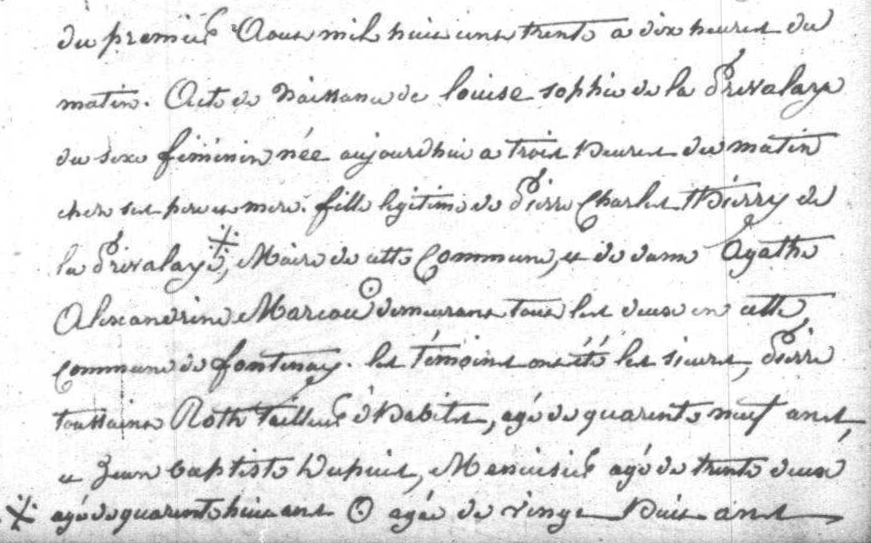 du premier Aout mil huit cent trente a dix heures du
matin. Acte de Naissance de louise sophie de la Prévalaye
du sexe féminin née aujourdhui a trois heures du matin
chez ses pere et mere. fille légitime de Pierre Charles Thierry de
la Prévalaye, Maire de cette Commune, et de dame Agathe
Alexandrine demeurant tous les deux en cette
Commune de fontenay. les témoins ont été les sieurs, Pierre
toussaint Roth tailleur d'habits, agé de quarente neuf ans,
et Jean baptiste Dupuis, Menuisié agé de trente deux
⁜ agé de quarente huit ans ⊙ agée de vingt huit ans